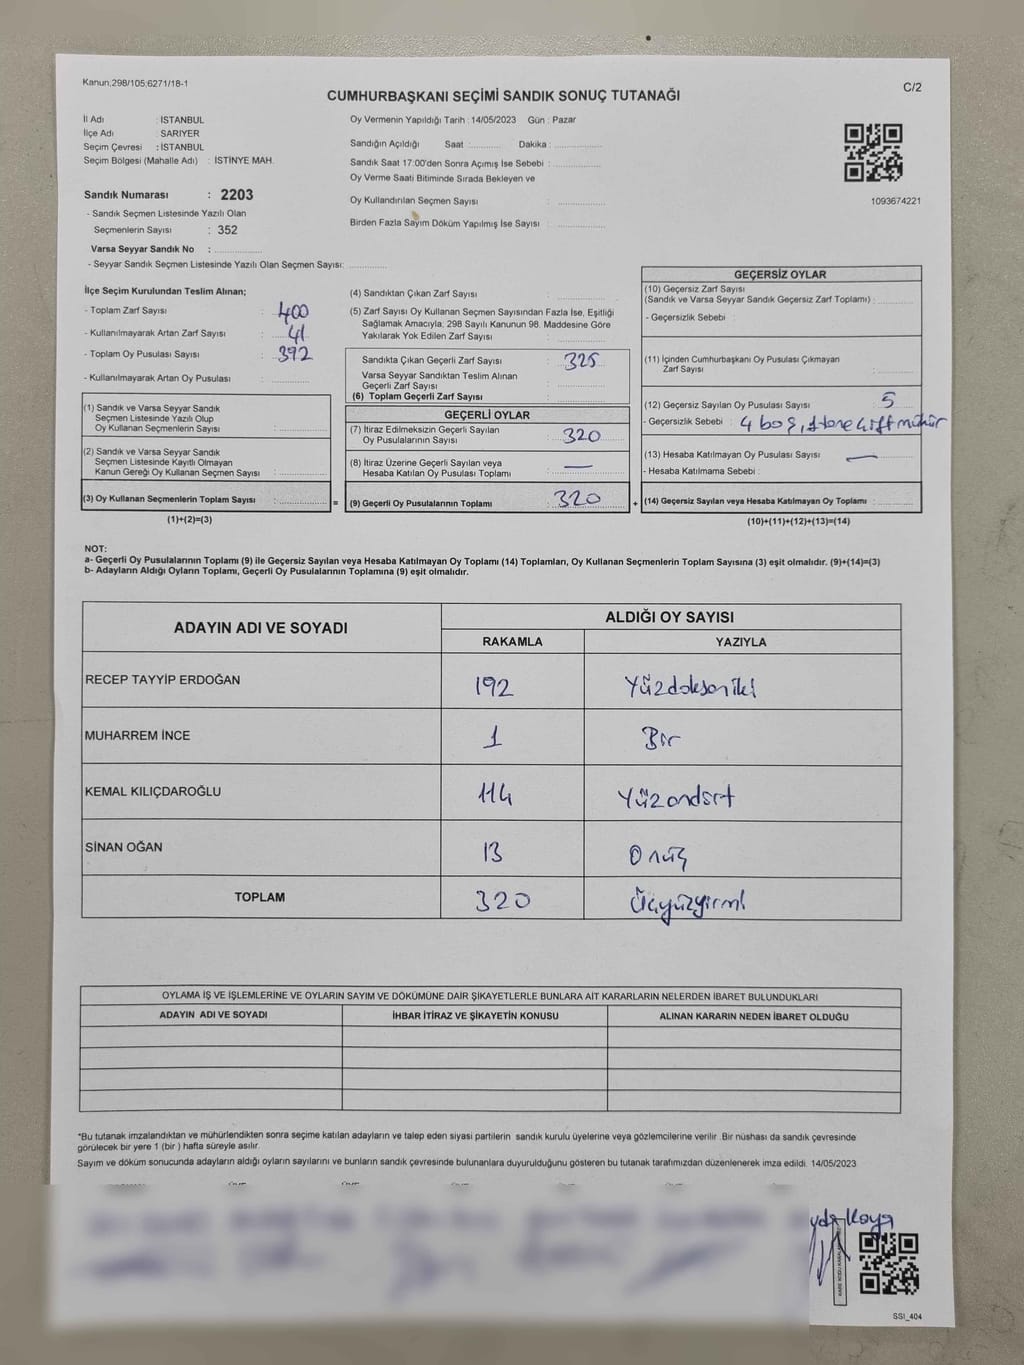 Kanun,298/105;6271/18-1
C/2
CUMHURBAŞKANI SEÇİMİ SANDIK SONUÇ TUTANAĞI
İl Adı : İSTANBUL
İlçe Adı : SARIYER
Seçim Çevresi : İSTANBUL
Seçim Bölgesi (Mahalle Adı) : İSTİNYE MAH.
Sandık Numarası : 2203
- Sandık Seçmen Listesinde Yazılı Olan
Seçmenlerin Sayısı : 352
Varsa Seyyar Sandık No : ..............
- Seyyar Sandık Seçmen Listesinde Yazılı Olan Seçmen Sayısı: ............
Oy Vermenin Yapıldığı Tarih : 14/05/2023 Gün : Pazar
Sandığın Açıldığı Saat :.......... Dakika : ...............
Sandık Saat 17:00'den Sonra Açımış İse Sebebi : ...............
Oy Verme Saati Bitiminde Sırada Bekleyen ve
Oy Kullandırılan Seçmen Sayısı : ...............
Birden Fazla Sayım Döküm Yapılmış İse Sayısı : ...............
1093674221
İlçe Seçim Kurulundan Teslim Alınan;
- Toplam Zarf Sayısı : 400
- Kullanılmayarak Artan Zarf Sayısı : 41
- Toplam Oy Pusulası Sayısı : 392
- Kullanılmayarak Artan Oy Pusulası : ............
(1) Sandık ve Varsa Seyyar Sandık
Seçmen Listesinde Yazılı Olup
Oy Kullanan Seçmenlerin Sayısı : ...............
(2) Sandık ve Varsa Seyyar Sandık
Seçmen Listesinde Kayıtlı Olmayan
Kanun Gereği Oy Kullanan Seçmen Sayısı : ...............
(3) Oy Kullanan Seçmenlerin Toplam Sayısı : ............... =
(1)+(2)=(3)
(4) Sandıktan Çıkan Zarf Sayısı : ...............
(5) Zarf Sayısı Oy Kullanan Seçmen Sayısından Fazla İse, Eşitliği
Sağlamak Amacıyla; 298 Sayılı Kanunun 98. Maddesine Göre
Yakılarak Yok Edilen Zarf Sayısı : ...............
Sandıkta Çıkan Geçerli Zarf Sayısı : 325
Varsa Seyyar Sandıktan Teslim Alınan
Geçerli Zarf Sayısı : ...............
(6) Toplam Geçerli Zarf Sayısı : ...............
GEÇERLİ OYLAR
(7) İtiraz Edilmeksizin Geçerli Sayılan
Oy Pusulalarının Sayısı : 320
(8) İtiraz Üzerine Geçerli Sayılan veya
Hesaba Katılan Oy Pusulası Toplamı : —
(9) Geçerli Oy Pusulalarının Toplamı : 320 +
GEÇERSİZ OYLAR
(10) Geçersiz Zarf Sayısı
(Sandık ve Varsa Seyyar Sandık Geçersiz Zarf Toplamı) : ............
- Geçersizlik Sebebi :
(11) İçinden Cumhurbaşkanı Oy Pusulası Çıkmayan
Zarf Sayısı : ............
(12) Geçersiz Sayılan Oy Pusulası Sayısı : 5
- Geçersizlik Sebebi : 4 boş, 1 tane çift mühür
(13) Hesaba Katılmayan Oy Pusulası Sayısı : —
- Hesaba Katılmama Sebebi :
(14) Geçersiz Sayılan veya Hesaba Katılmayan Oy Toplamı : ............
(10)+(11)+(12)+(13)=(14)
NOT:
a- Geçerli Oy Pusulalarının Toplamı (9) ile Geçersiz Sayılan veya Hesaba Katılmayan Oy Toplamı (14) Toplamları, Oy Kullanan Seçmenlerin Toplam Sayısına (3) eşit olmalıdır. (9)+(14)=(3)
b- Adayların Aldığı Oyların Toplamı, Geçerli Oy Pusulalarının Toplamına (9) eşit olmalıdır.
ADAYIN ADI VE SOYADI ALDIĞI OY SAYISI
RAKAMLA YAZIYLA
RECEP TAYYİP ERDOĞAN 192 Yüzdoksaniki
MUHARREM İNCE 1 Bir
KEMAL KILIÇDAROĞLU 114 Yüzondört
SİNAN OĞAN 13 Onüç
TOPLAM 320 Üçyüzyirmi
OYLAMA İŞ VE İŞLEMLERİNE VE OYLARIN SAYIM VE DÖKÜMÜNE DAİR ŞİKAYETLERLE BUNLARA AİT KARARLARIN NELERDEN İBARET BULUNDUKLARI
ADAYIN ADI VE SOYADI İHBAR İTİRAZ VE ŞİKAYETİN KONUSU ALINAN KARARIN NEDEN İBARET OLDUĞU
*Bu tutanak imzalandıktan ve mühürlendikten sonra seçime katılan adayların ve talep eden siyasi partilerin sandık kurulu üyelerine veya gözlemcilerine verilir .Bir nüshası da sandık çevresinde
görülecek bir yere 1 (bir ) hafta süreyle asılır.
Sayım ve döküm sonucunda adayların aldığı oyların sayılarını ve bunların sandık çevresinde bulunanlara duyurulduğunu gösteren bu tutanak tarafımızdan düzenlenerek imza edildi. 14/05/2023
Kaya
SSİ_404